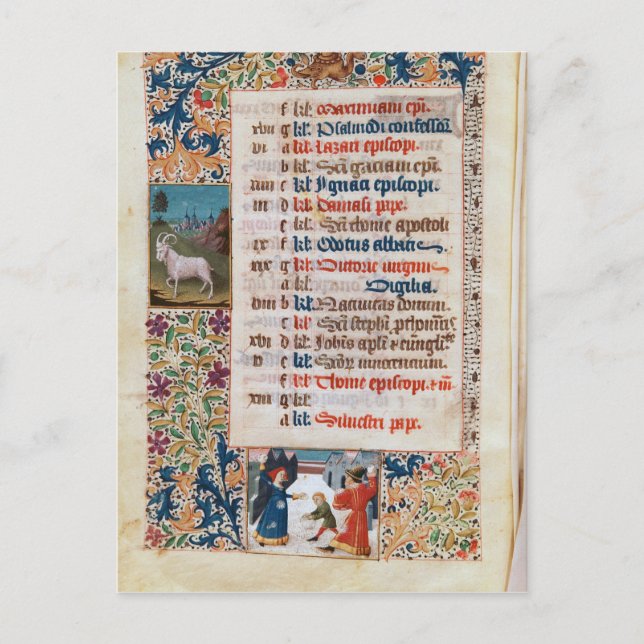 f kl̃ Maximiani ep̃i.
xviii g kl̃ Psalmodi confessor̃
vi a kl̃ Lazari episcopi.
b kl̃ Sc̃i gaciani ep̃i.
xiiii c kl̃ Ignaci episcopi.
iii d kl̃ Damasi pape.
e kl̃ Sc̃i thome apostoli
xi f kl̃ Odotus abbatis
xix g kl̃ Victorie virginis
a kl̃ Vigilia.
viii b kl̃ Nativitas domini.
c kl̃ Sc̃i stephi p̃thom̃ris
xvi d kl̃ Joh̃is apl̃i et euung̃lis
v e kl̃ Sc̃or̃ innocentum.
f kl̃ Thome episcopi et m̃
xiii g kl̃
a kl̃ Silvestri pape.